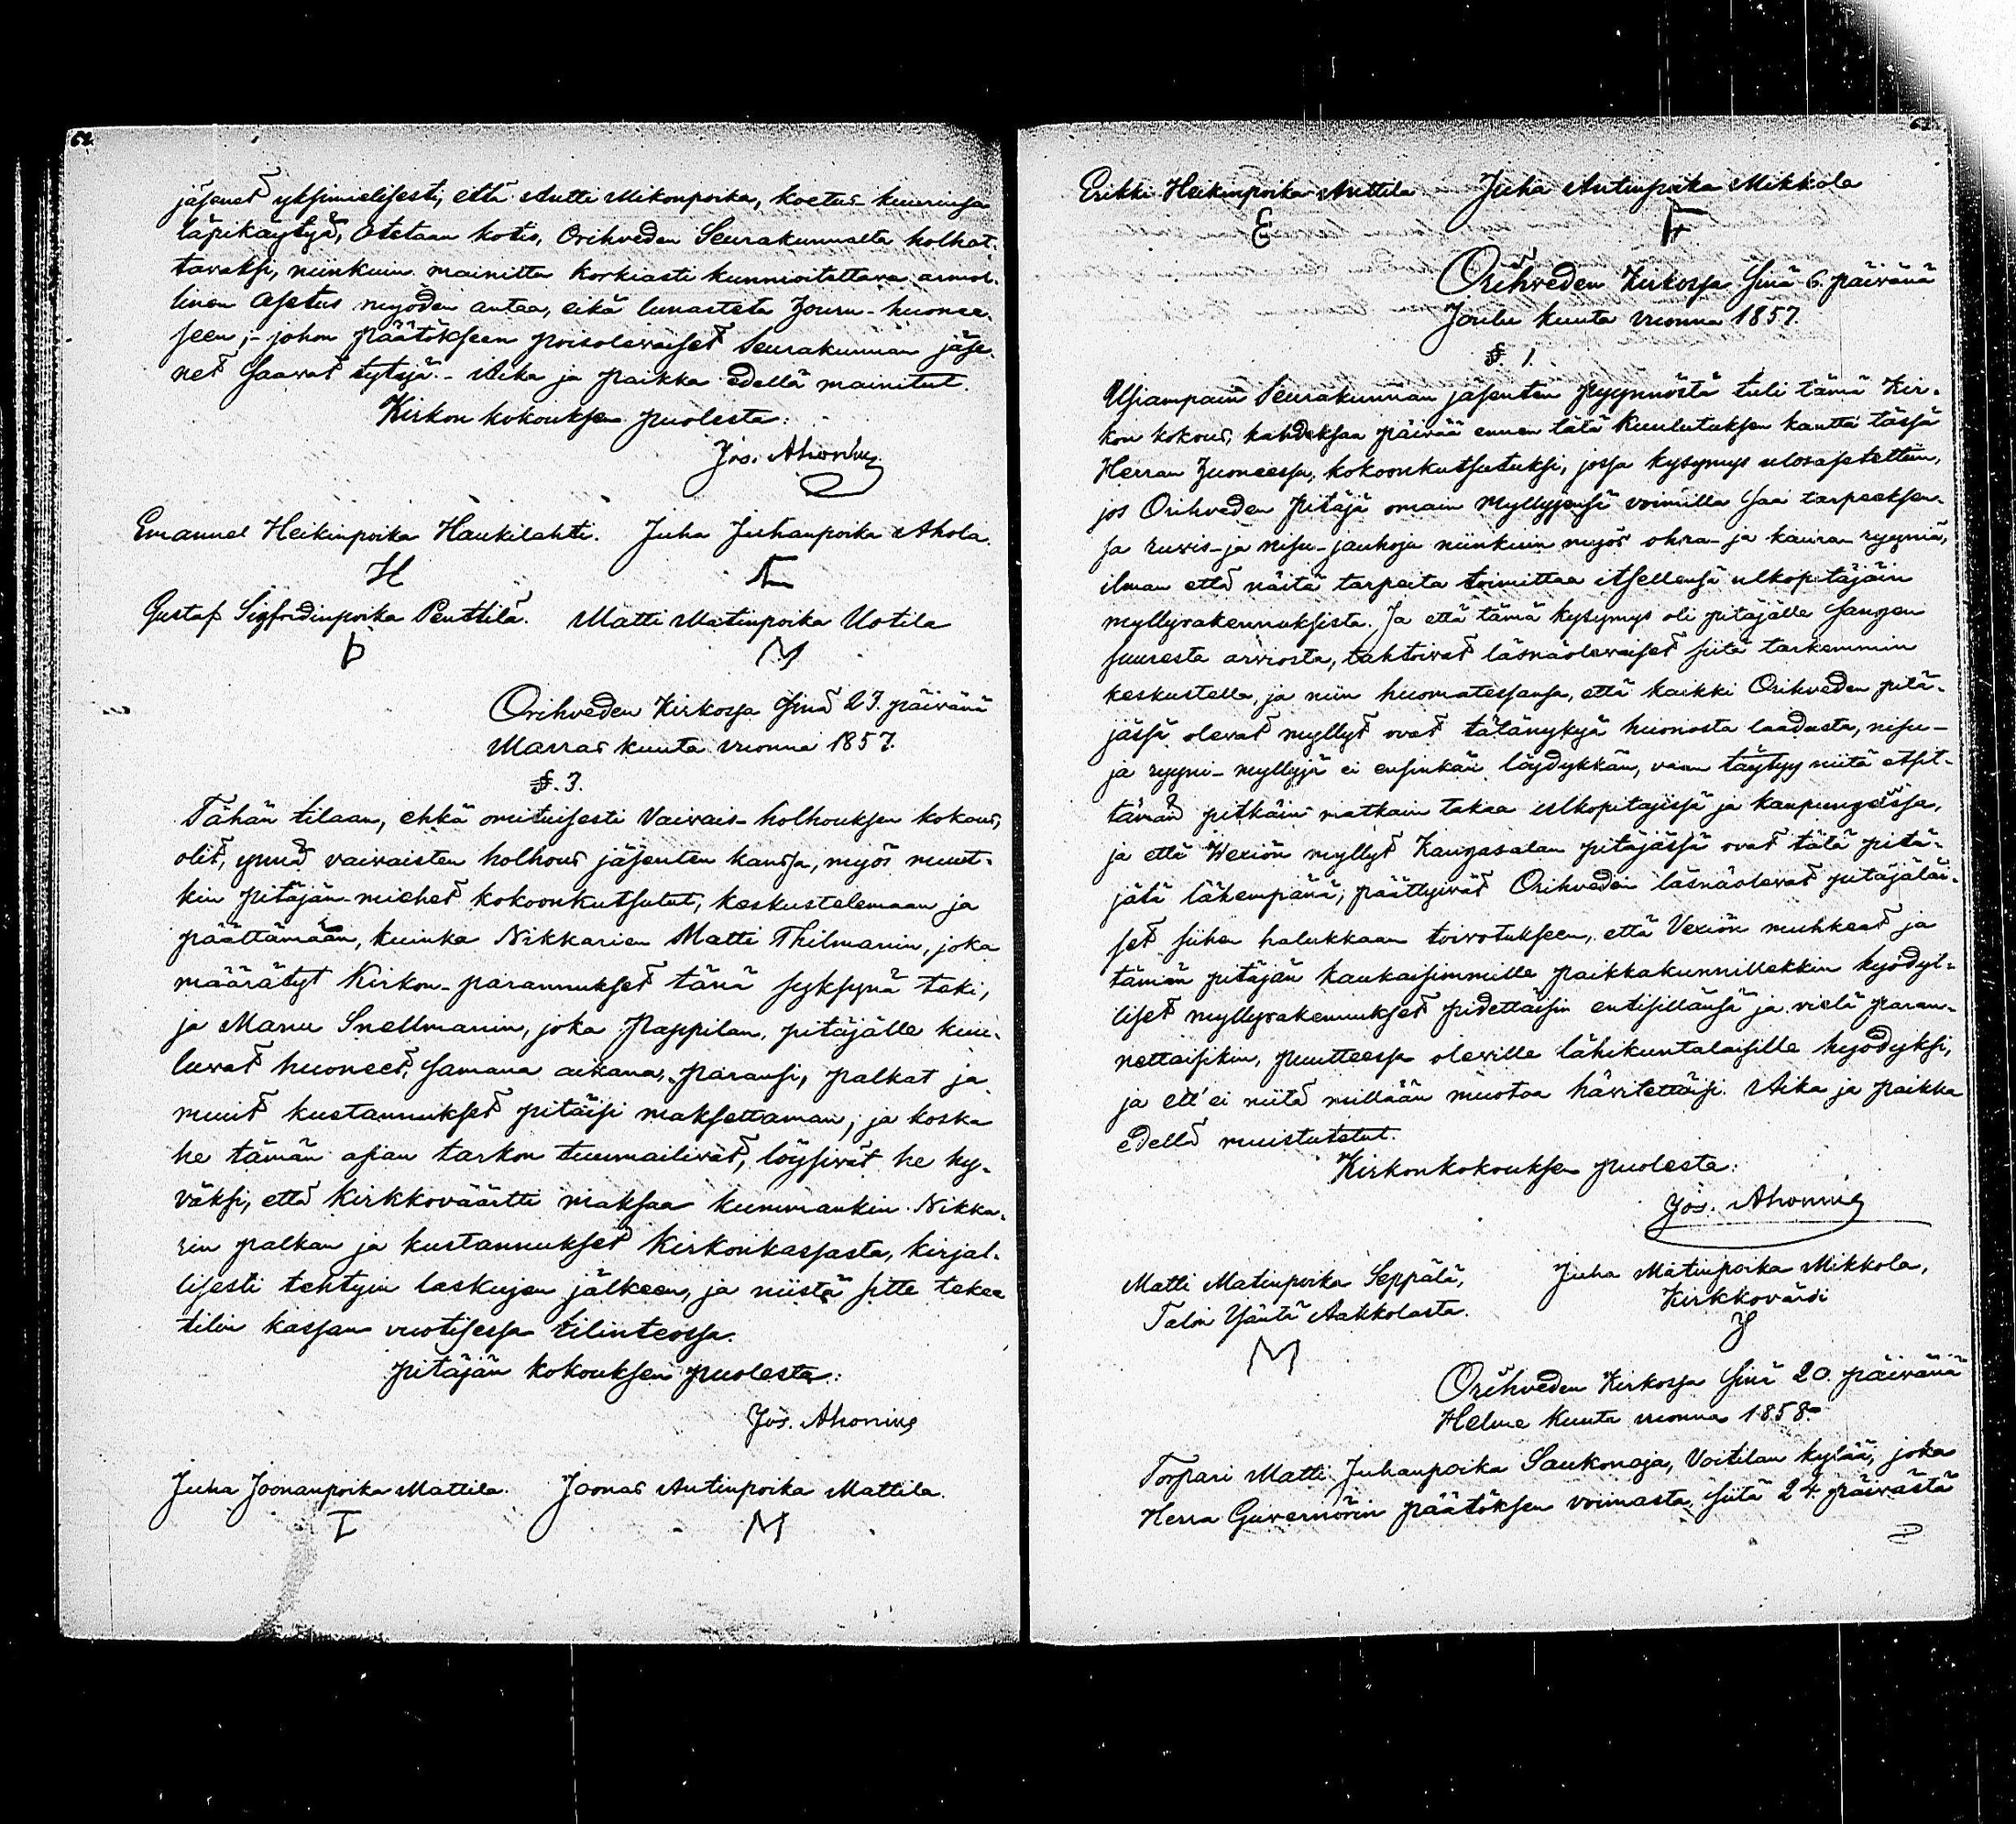 62.
jäsenet yksimielisesti, että Antti Mikonpoika, koetus-kuurinsa
läpikäytyä, otetaan kotio, Orihveden Seurakunnalta holhot-
tavaksi, niinkuin mainittu korkiasti kunnioitettava armol-
linen Asetus myöden antaa, eikä lunasteta houru-huonee-
seen; - johon päätökseen poisolevaiset Seurakunnan jäse-
net saavat tytyä. - Aika ja paikka edellä mainitut.
Kirkon kokouksen puolesta:
Jos. Ahonius
Emanuel Heikinpoika Haukilahti. Juha Juhanpoika Ahola.
H
Gustaf Sigfridinpoika Penttilä. Matti Matinpoika Uotila
M
Orihveden Kirkossa sinä 23. päivänä
Marras kuuta vuonna 1857.
§. 3.
Tähän tilaan, ehkä omituisesti Vaivais-holhouksen kokous,
olit, ynnä vaivaisten holhous jäsenten kanssa, myös muut-
kin pitäjän-miehet kokoonkutsutut, keskustelemaan ja
päättämään, kuinka Nikkarien Matti Thilmanin, joka
määrätyt Kirkon-parannukset tänä syksynä teki,
ja Manu Snellmanin, joka Pappilan, pitäjälle kuu-
luvat huoneet, samana aikana, paransi, palkat ja
muut kustannukset pitäisi maksettaman; ja koska
he tämän asian tarkon tuumailivat, löysivät he hy-
väksi, että Kirkkoväärtti maksaa kummankin Nikka-
rin palkan ja kustannukset Kirkonkassasta, kirjal-
lisesti tehtyin laskujen jälkeen, ja niistä sitte tekee
tilin kassan vuotisessa tilinteossa.
pitäjän kokouksen puolesta:
Jos. Ahonius
Juha Joonanpoika Mattila. Joonas Antinpoika Mattila.
I M
63.
Erikki Heikinpoika Anttila Juha Antinpoika Mikkola
E
Orihveden Kirkossa sinä 6. päivänä
Joulu kuuta vuonna 1857.
§. 1.
Usiampain Seurakunnan jäsenten pyynnöstä tuli tämä Kir-
kon kokous, kahdeksaa päivää ennen tätä Kuulutuksen kautta tässä
Herran Huoneessa, kokoonkutsutuksi, jossa kysymys ulosasetettiin,
jos Orihveden Pitäjä omain Myllyjensä voimilla saa tarpeeksen-
sa ruvis- ja nisu-jauhoja niinkuin myös ohra- ja kaura-ryyniä,
ilman että näitä tarpeita toimittaa itsellensä ulkopitäjäin
myllyrakennuksista. Ja että tämä kysymys oli pitäjälle sangen
suuresta arviosta, tahtoivat läsnäolevaiset siitä tarkemmin
keskustella, ja niin huomatessansa, että kaikki Orihveden pitä-
jässä olevat myllyt ovat tätänykyä huonosta laadusta, nisu-
ja ryyni-myllyjä ei ensinkän löydykkän, vaan täytyy niitä etsit-
tämän pitkäin matkain takaa ulkopitäjissä ja kaupungeissa,
ja että Wexiön myllyt Kangasalan pitäjässä ovat tätä pitä-
jätä lähempänä; päättyivät Orihveden läsnäolevat pitäjäläi-
set siihen halukkaan toivotukseen, että Vexiön muhkeat ja
tämän pitäjän kaukaisimmille paikkakunnillekkin hyödyl-
liset myllyrakennukset pidettäisin entisillänsä ja vielä paran-
nettaisikin, puutteessa oleville lähikuntalaisille hyödyksi,
ja ett'ei niitä millään muotoa hävitettäisi. Aika ja paikka
edellä muistutetut.
Kirkonkokouksen puolesta:
Jos. Ahonius
Matti Matinpoika Seppälä, Juha Matinpoika Mikkola,
Talon Isäntä Aakkolasta. Kirkkovärdi
M
Orihveden Kirkossa sinä 20. päivänä
Helme kuuta vuonna 1858.
Torpari Matti Juhanpoika Saukonoja, Voitilan kylää, joka
Herra Guvernörin päätöksen voimasta siitä 24. päivästä